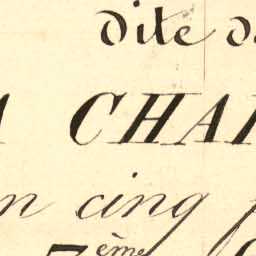 dite d
A CHA
n cinq f
7ème